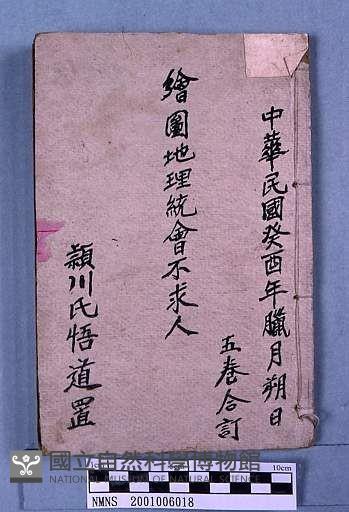 中華民國癸酉年臘月朔日
繪圖地理統會不求人
五卷合訂
穎川氏悟道置
國立自然科學博物館
NATIONAL MUSEUM OF NATURAL SCIENCE
10cm
NMNS 2001006018